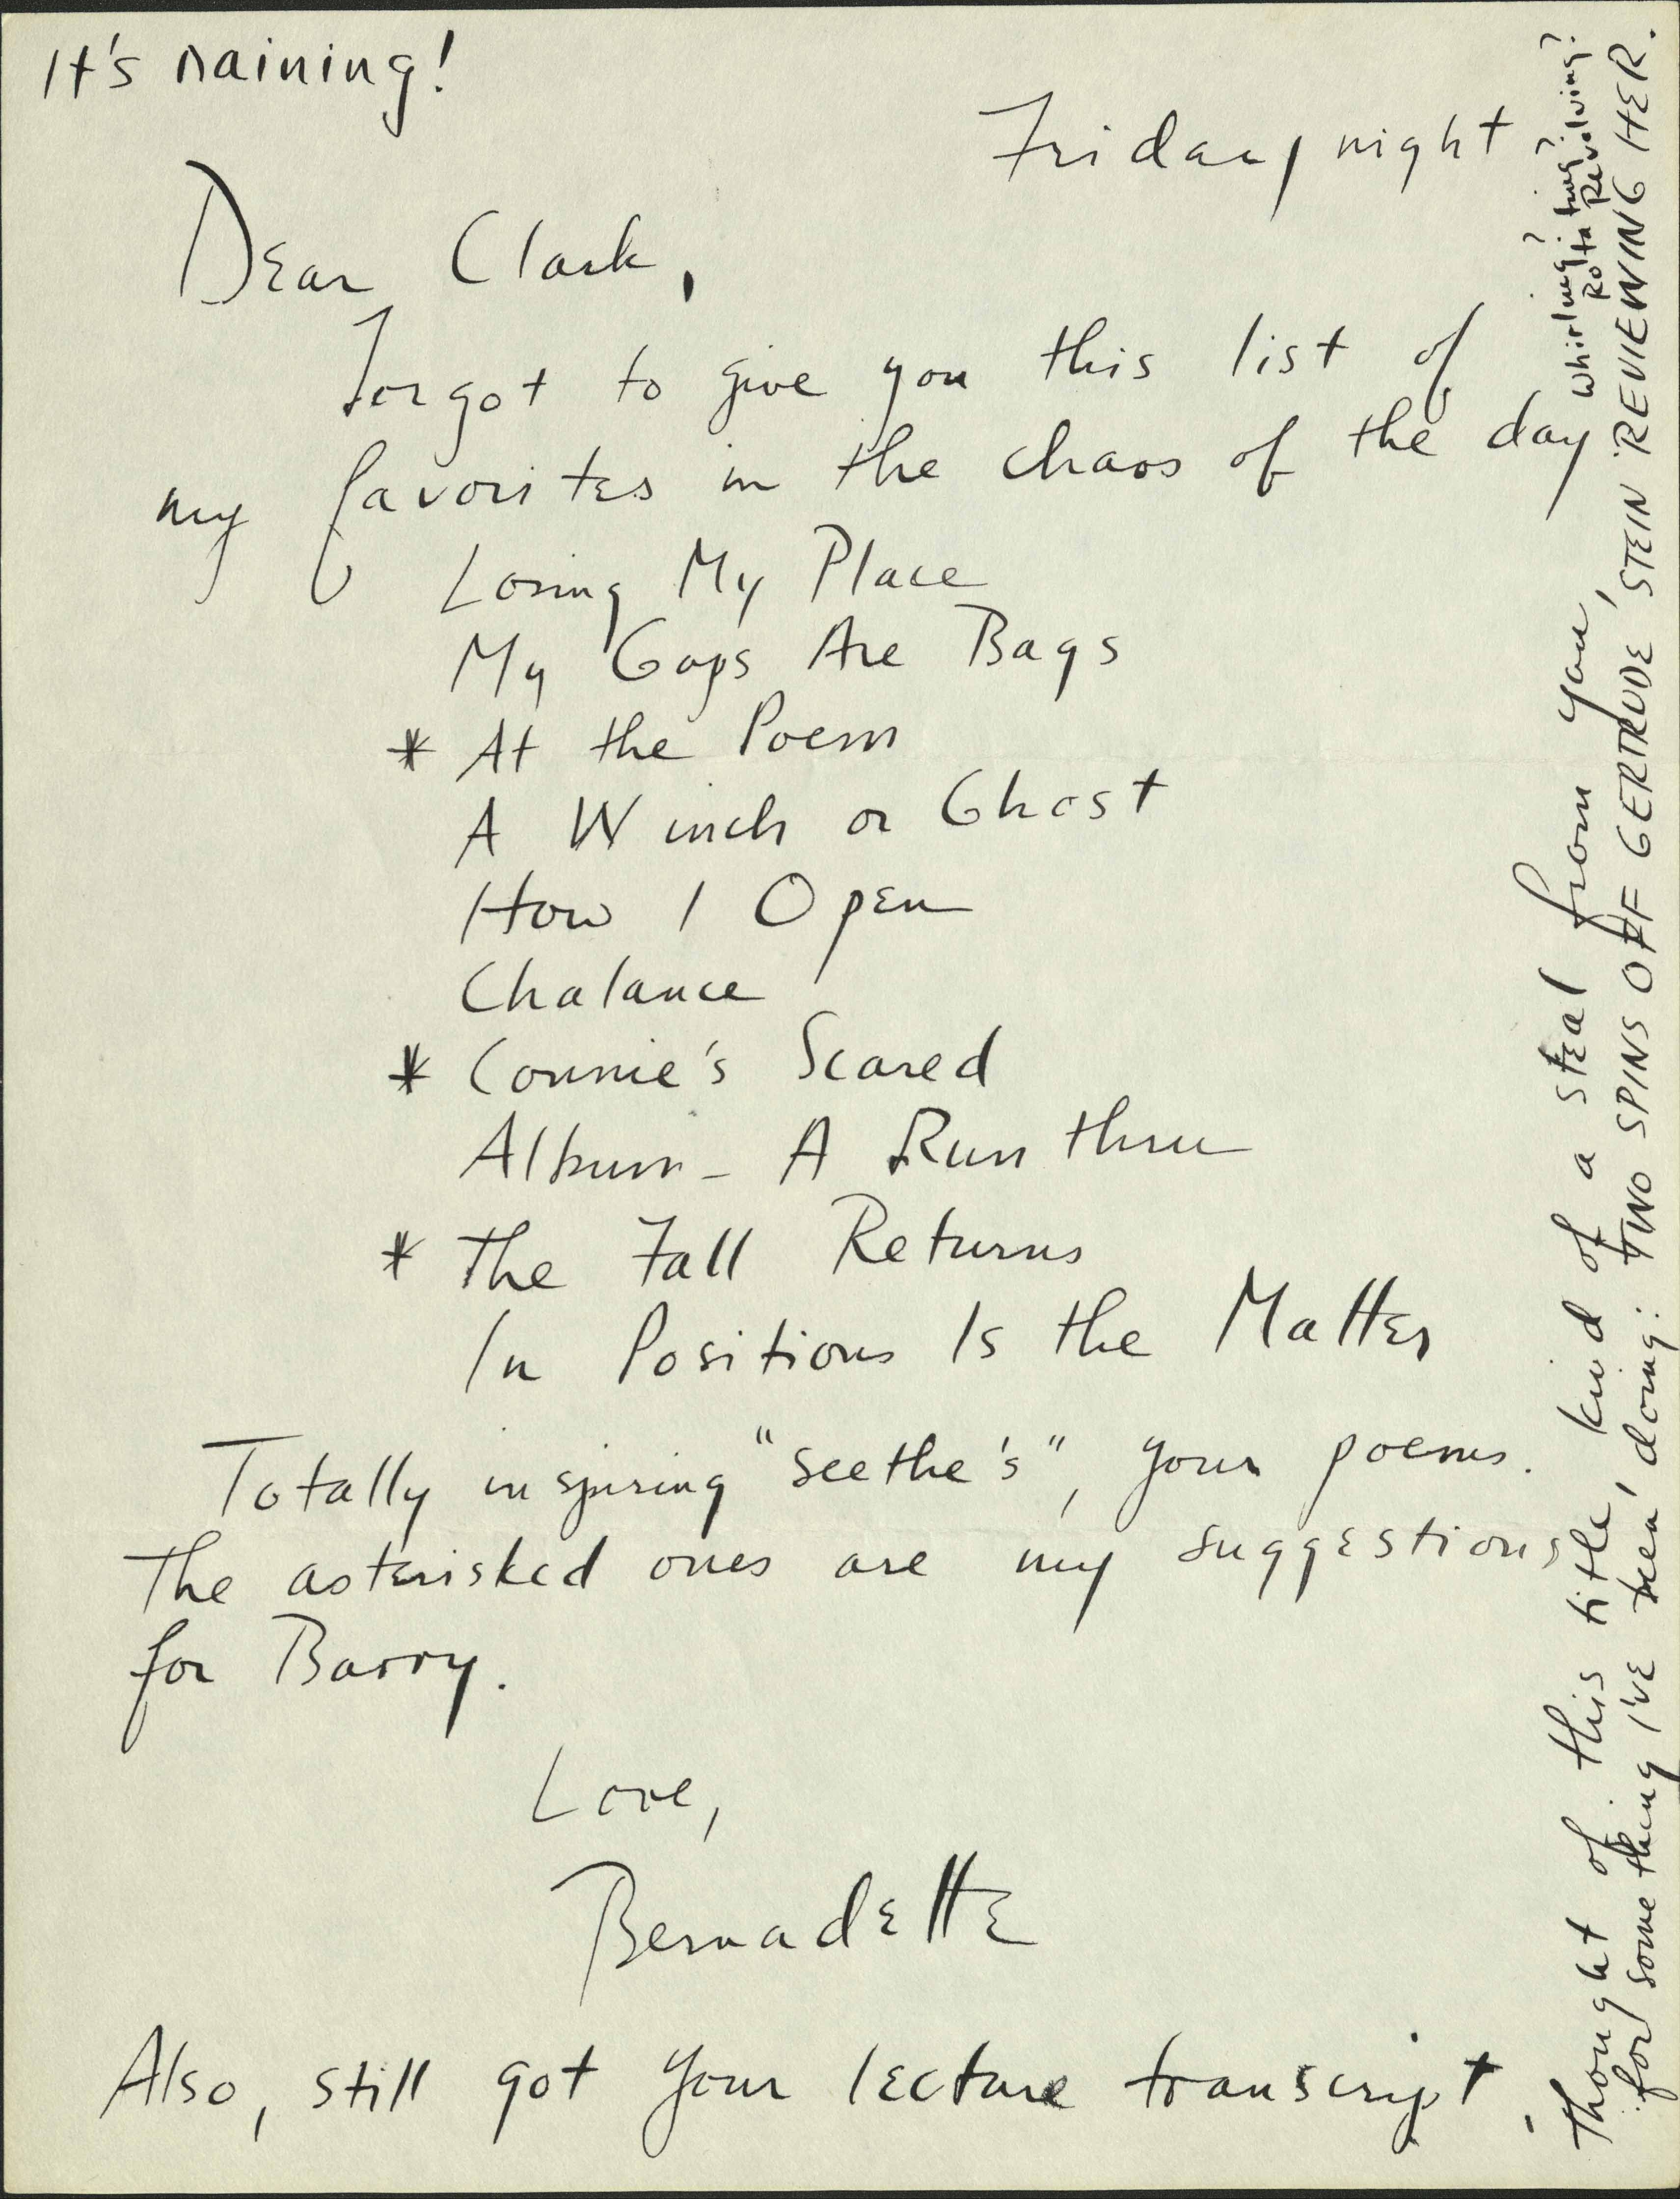 It's raining!
Friday night
Dear Clark,
Forgot to give you this list of
my favorites in the chaos of the day
Losing My Place
My Gaps Are Bags
* At the Poem
A Winch or Ghost
How I Open
Chalance
* Connie's Scared
Album - A Run thru
* The Fall Returns
In Positions Is the Matter
Totally inspiring "seethe's", your poems.
The asterisked ones are my suggestions
for Barry.
Love,
Bernadette
Also, still got your lecture transcript.
Thought of this title, kind of a steal from you,
for something I've been doing: TWO SPINS OFF GERTRUDE STEIN REVIEWING HER.
whirling? turning?
Rotating? Revolving?